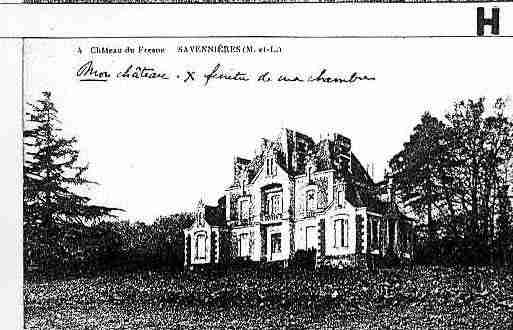 H
4 Château du Fresne SAVENNIÈRES (M.-et-L.)
Mon château . X fenêtre de ma chambre